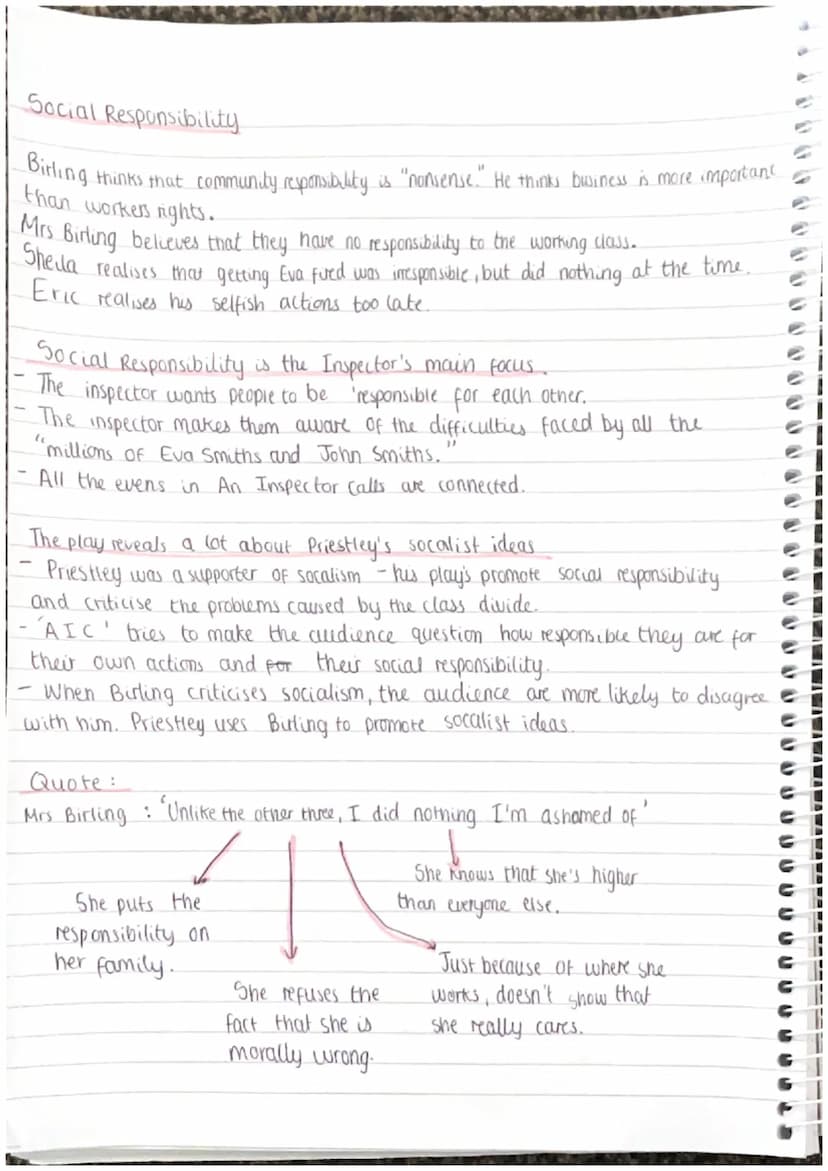 Social Responsibility
Birling thinks that community responsibility is "nonsense." He thinks business is more important
than workers rights.
Mrs Birling believes that they have no responsibility to the working class.
Sheila realises that getting Eva fired was irresponsible, but did nothing at the time.
Eric realises his selfish actions too late.
Social Responsibility is the Inspector's main focus.
- The inspector wants people to be 'responsible for each other.
- The inspector makes them aware of the difficulties faced by all the
"millions of Eva Smiths and John Smiths."
- All the evens in An Inspector Calls are connected.
The play reveals a lot about Priestley's socalist ideas
- Priestley was a supporter of socalism - his play's promote social responsibility
and criticise the problems caused by the class divide.
- 'AIC' tries to make the audience question how responsible they are for
their own actions and for their social responsibility.
- When Birling criticises socialism, the audience are more likely to disagree
with him. Priestley uses Birling to promote socalist ideas.
Quote:
Mrs Birling : 'Unlike the other three, I did nothing I'm ashamed of'
She puts the
responsibility on
her family.
She refuses the
fact that she is
morally wrong.
She knows that she's higher
than everyone else.
Just because of where she
works, doesn't show that
she really cares.